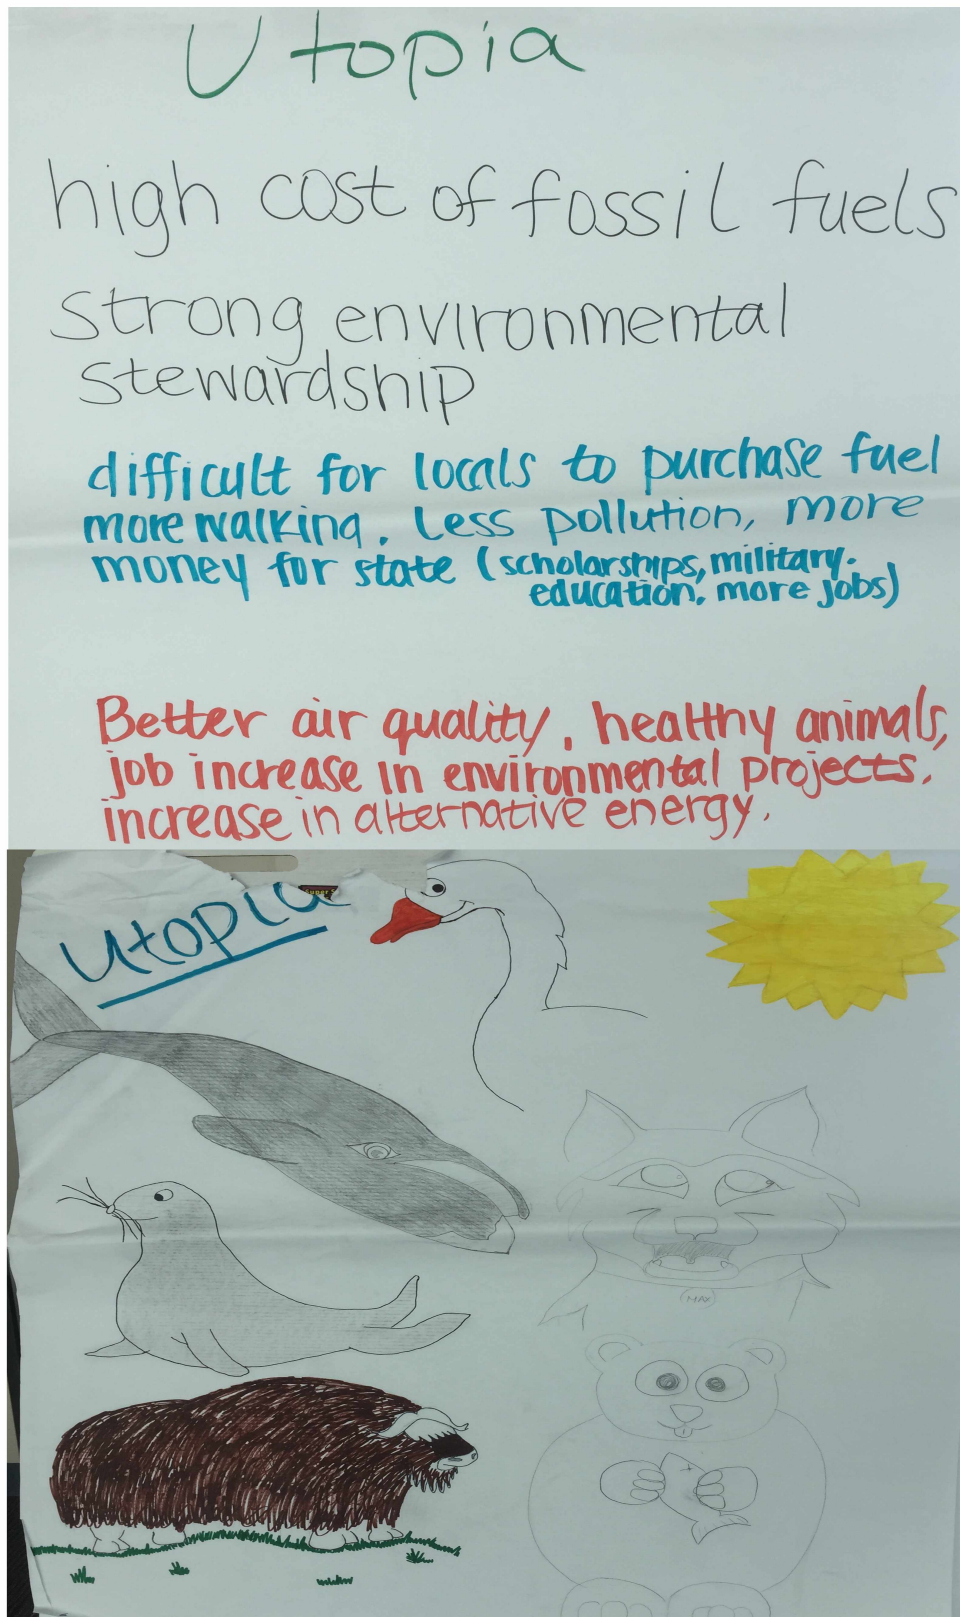 Utopia
high cost of fossil fuels
strong environmental
stewardship
difficult for locals to purchase fuel
more walking. Less pollution, more
money for state (scholarships, military.
education. more jobs)
Better air quality, healthy animals,
job increase in environmental projects.
increase in alternative energy.
Utopia
MAX